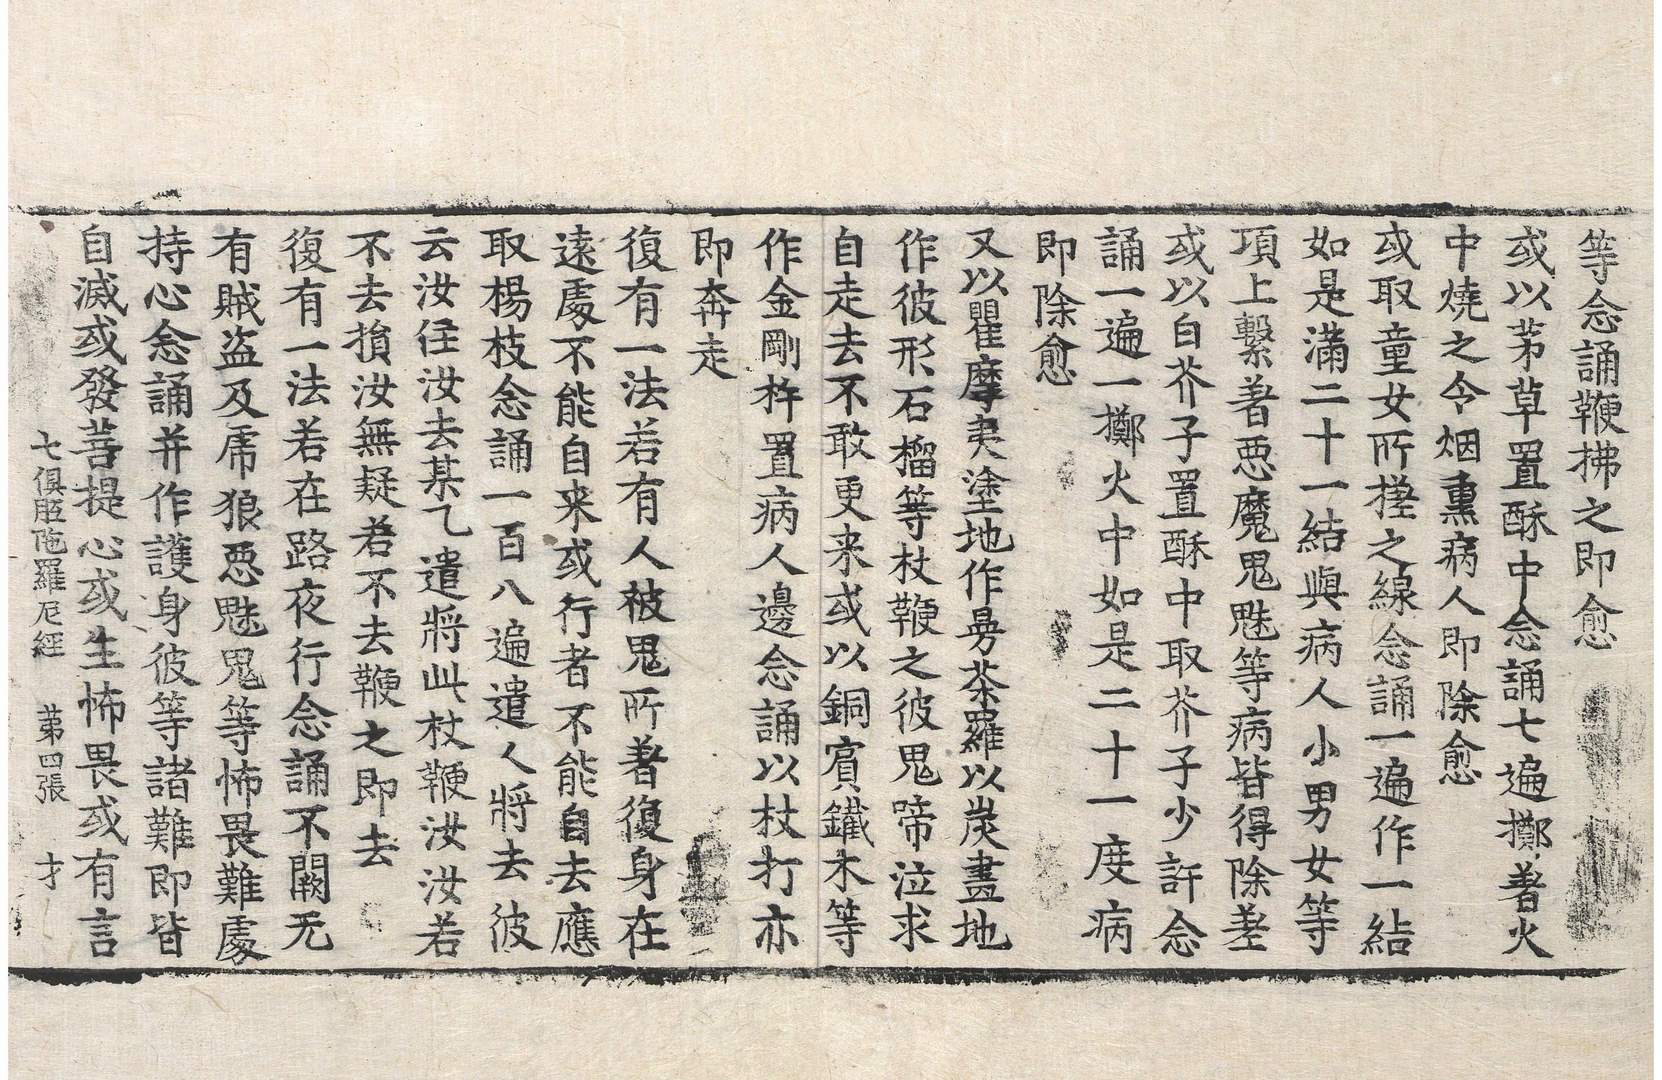 等念誦鞭拂之即愈
或以茅草置酥中念誦七遍擲著火
中燒之令烟熏病人即除愈
或取童女所搓之線念誦一遍作一結
如是滿二十一結與病人小男女等
項上繫著惡魔鬼魅等病皆得除差
或以白芥子置酥中取芥子少許念
誦一遍一擲火中如是二十一度病
即除愈
又以瞿摩夷塗地作曼荼羅以炭畫地
作彼形石榴等杖鞭之彼鬼啼泣求
自走去不敢更来或以銅賓鐵木等
作金剛杵置病人邊念誦以杖打亦
即奔走
復有一法若有人被鬼所著復身在
遠處不能自来或行者不能自去應
取楊枝念誦一百八遍遣人將去彼
云汝往汝去某乙遣將此杖鞭汝汝若
不去損汝無疑若不去鞭之即去
復有一法若在路夜行念誦不闕无
有賊盗及虎狼惡魅鬼等怖畏難處
持心念誦并作護身彼等諸難即皆
自滅或發菩提心或生怖畏或有言
七俱胝陁羅尼經　第四張　才